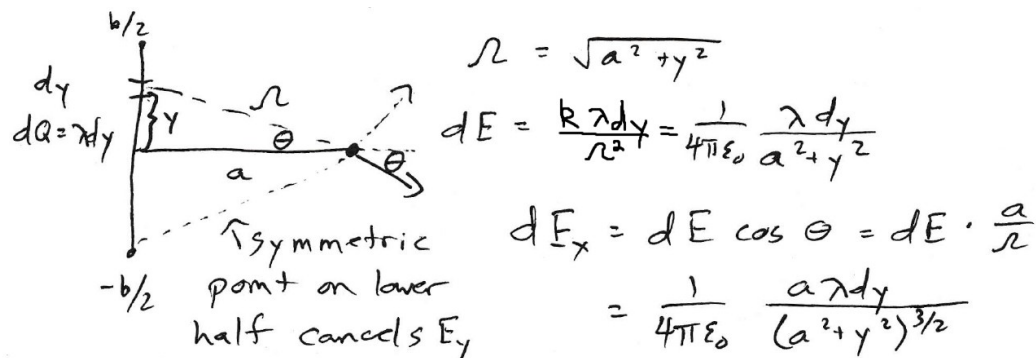 b/2
dy
dQ = λdy
y
r
θ
a
θ
-b/2
↑ symmetric
point on lower
half cancels E_y
r = √(a² + y²)
dE = kλdy/r² = 1/(4πε₀) λdy/(a² + y²)
dE_x = dE cos θ = dE · a/r
= 1/(4πε₀) aλdy/(a² + y²)^(3/2)